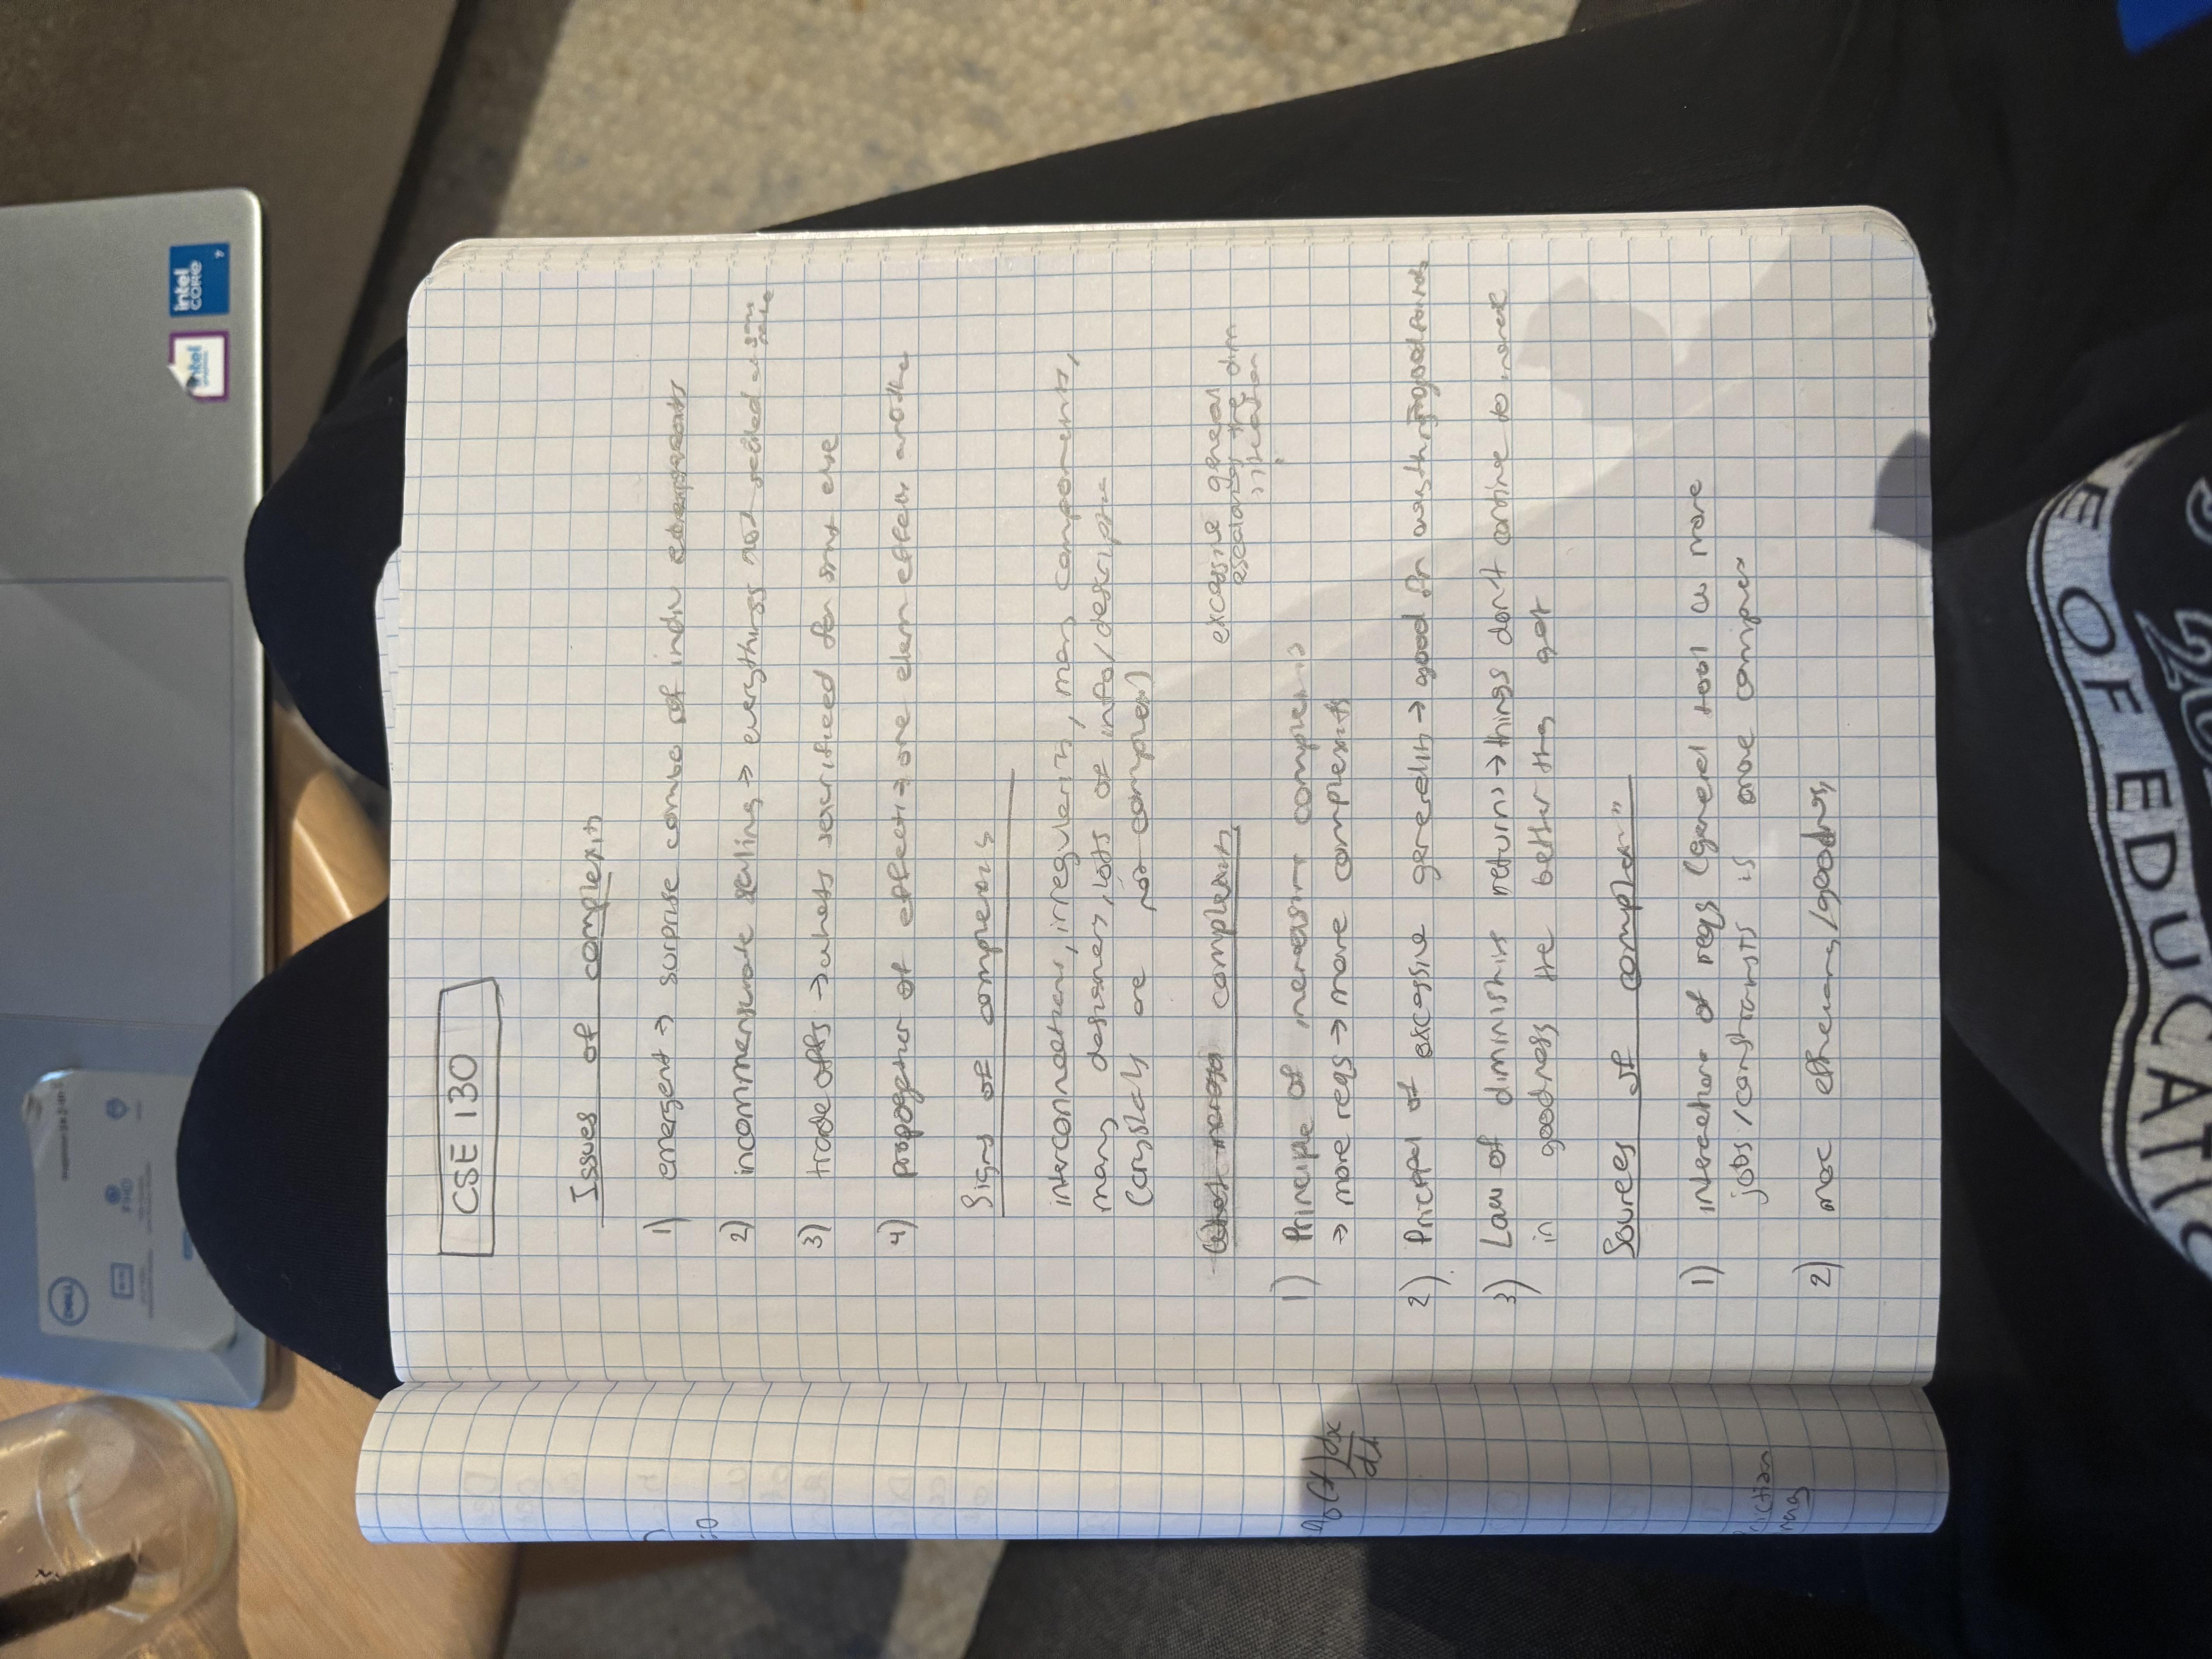 CSE 130
Issues of complexity
1) emergent → surprise combo of indiv
2) incommensurate scaling → everythings not scaled at same
3) trade offs → whats sacrificed for smt else
4) propogation of effects → one elem effects another
Signs of complexity
interconnections, irregularity, many components,
many designers, lots of info/description
(crystals are not complex)
complexity
excessive general
escalating the
1) Principle of complexity
→ more reqs → more complexity
2) of excessive generality → good for anything good for no
3) Law of diminishing return → things dont continue to increase
in goodness the better they get
Sources of
1) interaction of reqs (general tool w more
jobs/constraints is more complex
2) /goodness
dx
dt
intel
CORE
7
intel
DELL
OF EDUCATIO